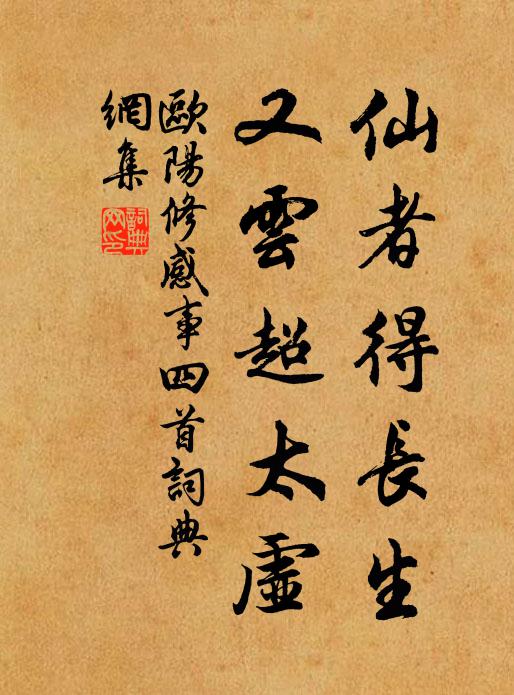 仙者得長生
又雲超太虛
歐陽修感事四首詞典
網集
詞典
网印